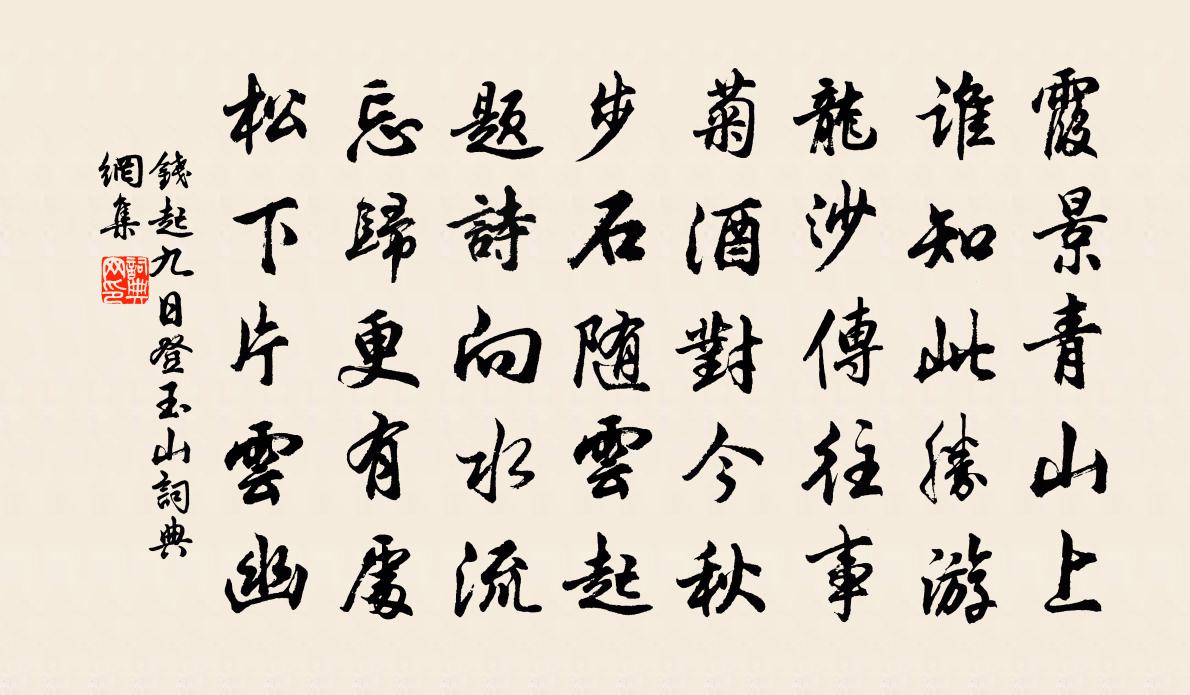 霞景青山上
誰知此勝游
龍沙傳往事
菊酒對今秋
步石隨雲起
題詩向水流
忘歸更有處
松下片雲幽
錢起九日登玉山詞典
網集
詞典
网印